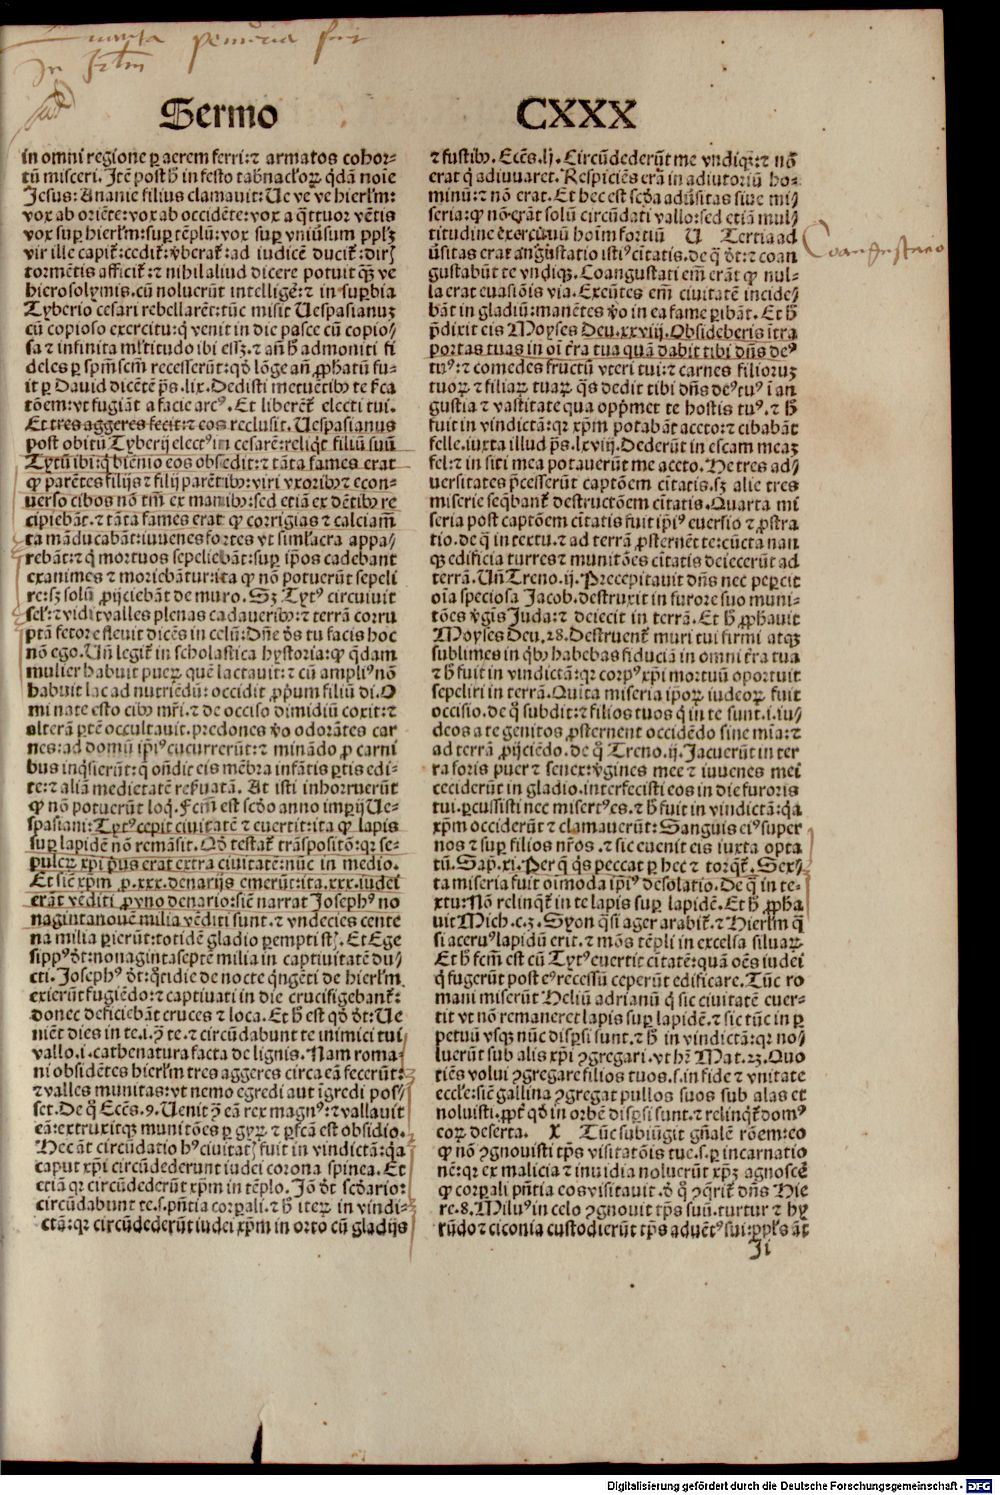 Quanta penuria fuit
in Jrlm
Sermo CXXX
in omni regione ꝑ aerem ferri:⁊ armatos cohor⸗
tũ misceri. Jtẽ post h̃ in festo tabnacl'oꝝ q̃dã noīe
Jesus: Ananie filius clamauit: Ue ve ve hierl'm:
vox ab oriẽte: vox ab occidẽte: vox a q̃ttuor vẽtis
vox suꝑ hierl'm: suꝑ tẽplũ: vox suꝑ vniũsum ppl'ꝫ
vir ille capit᷑: cedit᷑: v̄berat᷑: ad iudicẽ ducit᷑: dir
tormẽtis afficit᷑: ⁊ nihil aliud dicere potuit qꝫ ve
hierosolymis. cũ noluerũt intellige᷑: ⁊ in suꝑbia
Tyberio cesari rebellarẽt: tũc misit Uespasianuꝫ
cũ copioso exercitu: q̃ venit in die pasce cũ copio⸗
sa ⁊ infinita ml'titudo ibi essꝫ. ⁊ añ h̃ admoniti fi
deles ꝑ sp̄m scm̄ recesserũt: qđ lõge añ ꝓphatũ fu⸗
it ꝑ Dauid dicẽtẽ ps̄. lix. Dedisti metuẽtibꝰ te s̄ca
tõem: vt fugiãt a facie arcꝰ. Et liberẽt᷑ electi tui.
Et tres aggeres fecit: ⁊ eos reclusit. Uespasianus
post obitũ Tyberij electꝰ in cesarẽ: reliq̃t filiũ suũ
Tytũ ibi: q̃ biẽnio eos obsedit: ⁊ tãta fames erat
ꝙ parẽtes filijs ⁊ filij parẽtibꝰ: viri vxoribꝰ ⁊ econ⸗
uerso cibos nõ tm̃ ex manibꝰ: sed etiã ex dẽtibꝰ re
cipiebãt. ⁊ tãta fames erat ꝙ corrigias ⁊ calciam̃
ta mãducabãt: iuuenes fortes vt siml'acra appa⸗
rebãt: ⁊ q̃ mortuos sepeliebãt: suꝑ ip̃os cadebant
exanimes ⁊ moriebãtur: ita ꝙ nõ potuerũt sepeli
re: sꝫ solũ ꝓijciebãt de muro. Sꝫ Tytꝰ circuiuit
sel᷑: ⁊ vidit valles plenas cadaueribꝰ: ⁊ terrã corru
ptã fetore fleuit dicẽs in celũ: Dñe ds̄ tu facis hoc
nõ ego. Uñ legit᷑ in scholastica hystoria: ꝙ q̃dam
mulier habuit pueꝝ quẽ lactauit: ⁊ cũ ampliꝰ nõ
habuit lac ad nutriẽdũ: occidit ꝓp̃um filiũ di. O
mi nate esto cibꝰ mr̃i. ⁊ de occiso dimidiũ coxit: ⁊
alterã ꝑtẽ occultauit. predones v̄o odorãtes car
nes: ad domũ ip̃iꝰ cucurrerũt: ⁊ minãdo ꝓ carni
bus inq̃sierũt: q̃ oñdit eis mẽbra infãtis ꝑtis edi⸗
te: ⁊ aliã medietatẽ reẜuatã. At isti inhorruerũt
ꝙ nõ potuerũt loq̃. Fcm̃ est scđo anno imꝑij Ue⸗
spasiani: Tytꝰ cepit ciuitatẽ ⁊ euertit: ita ꝙ lapis
suꝑ lapidẽ nõ remãsit. Qđ testat᷑ trãspositõ: qꝛ se⸗
pulcꝝ xp̃i p̃us erat extra ciuitatẽ: nũc in medio.
Et sic̃ xp̃m ꝓ. xxx. denarijs emerũt: ita. xxx. iudei
erãt vẽditi ꝓ vno denario: sic̃ narrat Josephꝰ no
nagintanouẽ milia vẽditi sunt. ⁊ vndecies cente
na milia ꝑierũt: totidẽ gladio ꝑempti st̃. Et Ege
sippꝰ d̃t: nonagintaseptẽ milia in captiuitatẽ du⸗
cti. Josephꝰ d̃t: q̃tidie de nocte q̃ngẽti de hierl'm
exierũt fugiẽdo: ⁊ captiuati in die crucifigebant᷑:
donec deficiebãt cruces ⁊ loca. Et h̃ est qđ d̃t: Ue
niẽt dies in te. i. ɔ̃ te. ⁊ circũdabunt te inimici tui
vallo. i. cathenatura facta de lignis. Nam roma⸗
ni obsidẽtes hierl'm tres aggeres circa eã fecerũt:
⁊ valles munitas: vt nemo egredi aut ĩgredi pos⸗
set. De q̃ Ecẽs. 9. Uenit ɔ̃ eã rex magnꝰ: ⁊ vallauit
eã: extruxitqꝫ munitões ꝑ gyꝝ ⁊ ꝑfcã est obsidio.
Hec ãt circũdatio hꝰ ciuitat fuit in vindictã: q̃a
caput xp̃i circũdederunt iudei corona spinea. Et
etiã qꝛ circũdederũt xp̃m in tẽplo. Jo. d̃t scđario:
circũdabunt te. s. pñtia corꝑali. ⁊ h̃ iteꝝ in vindi⸗
ctã: qꝛ circũdederũt iudei xp̃m in orto cũ gladijs
⁊ fustibꝰ. Ecẽs. lj. Circũdederũt me vndiqꝫ: ⁊ nõ
erat q̃ adiuuaret. Respiciẽs erã in adiutoriũ ho⸗
minũ: ⁊ nõ erat. Et hec est scđa adũsitas siue mi⸗
seria: ꝙ nõ erãt solũ circũdati vallo: sed etiã mul⸗
titudine exercituũ hoĩm fortiũ U Tertia ad
ũsitas erat angustatio istiꝰ cĩtatis. de q̃ d̃t: ⁊ coan
gustabũt te vndiqꝫ. Coangustati em̃ erãt ꝙ nul⸗
la erat euasiõis via. Exeũtes em̃ ciuitatẽ incide⸗
bãt in gladiũ: manẽtes v̄o in ea fame ꝑibãt. Et h̃
p̃dixit eis Moyses Deu. xxviij. Obsideberis ĩtra
portas tuas in oĩ t̃ra tua quã dabit tibi dñs deꝰ
tuꝰ: ⁊ comedes fructũ vteri tui: ⁊ carnes filioruꝫ
tuoꝝ ⁊ filiaꝝ tuaꝝ q̃s dedit tibi dñs deꝰ tuꝰ ĩ an
gustia ⁊ vastitate qua opp̃met te hostis tuꝰ. ⁊ h̃
fuit in vindictã: qꝛ xp̃m potabãt aceto: ⁊ cibabãt
felle. iuxta illud ps̄. lxviij. Dederũt in escam meaꝫ
fel: ⁊ in siti mea potauerũt me aceto. He tres ad⸗
uersitates p̃cesserũt captõem cĩtatis. sꝫ alie tres
miserie seq̃bant᷑ destructõem cĩtatis. Quarta mi
seria post captõem cĩtatis fuit ip̃iꝰ euersio ⁊ ꝓstra
tio. de q̃ in textu. ⁊ ad terrã ꝓsternẽt te: cũcta nan
qꝫ edificia turres ⁊ munitões cĩtatis deiecerũt ad
terrã. Uñ Treno. ij. Precepitauit dñs nec peꝑcit
oĩa speciosa Jacob. destruxit in furore suo muni⸗
tões v̄gĩs Juda: ⁊ deiecit in terrã. Et h̃ ꝓphauit
Moyses Deu. 28. Destruent᷑ muri tui firmi atqꝫ
sublimes in q̃bꝰ habebas fiduciã in omni t̃ra tua
⁊ h̃ fuit in vindictã: qꝛ corpꝰ xp̃i mortuũ oportuit
sepeliri in terrã. Quĩta miseria ip̃oꝝ iudeoꝝ fuit
occisio. de q̃ subdit: ⁊ filios tuos q̃ in te sunt. i. iu⸗
deos a te genitos ꝓsternent occidẽdo sine mĩa: ⁊
ad terrã ꝓijciẽdo. de q̃ Treno. ij. Jacuerũt in ter
ra foris puer ⁊ senex: v̄gines mee ⁊ iuuenes mei
ceciderũt in gladio. interfecisti eos in die furoris
tui. ꝑcussisti nec misertꝰ es. ⁊ h̃ fuit in vindictã: q̃a
xp̃m occiderũt ⁊ clamauerũt: Sanguis eiꝰ super
nos ⁊ suꝑ filios nr̃os. ⁊ sic euenit eis iuxta opta
tũ. Sap̃. xi. Per q̃ q̃s peccat ꝑ hec ⁊ torq̃t᷑. Sex⸗
ta miseria fuit oĩmoda ip̃iꝰ desolatio. De q̃ in te⸗
xtu: Nõ relinq̃t᷑ in te lapis suꝑ lapidẽ. Et h̃ ꝓpha
uit Mich. c. 3. Syon q̃si ager arabit᷑. ⁊ Hierl'm q̃
si aceruꝰ lapidũ erit. ⁊ mõs tẽpli in excelsa siluaꝝ
Et h̃ fcm̃ est cũ Tytꝰ euertit cĩtatẽ: quã oẽs iudei
q̃ fugerũt post eꝰ recessũ ceperũt edificare. Tũc ro
mani miserũt Heliũ adrianũ q̃ sic ciuitatẽ euer⸗
tit vt nõ remaneret lapis suꝑ lapidẽ. ⁊ sic tũc in ꝑ
petuũ vsqꝫ nũc disꝑsi sunt. ⁊ h̃ in vindictã: qꝛ no⸗
luerũt sub alis xp̃i ꝯgregari. vt hẽt Mat. 23. Quo
tiẽs volui ꝯgregare filios tuos. s. in fide ⁊ vnitate
eccl'e: sic̃ gallina ꝯgregat pullos suos sub alas et
noluisti. ꝓpt᷑ qđ in orbẽ disꝑsi sunt. ⁊ relinq̃t᷑ domꝰ
eoꝝ deserta. X Tũc subiũgit gñalẽ rõem: eo
ꝙ nõ ꝯgnouisti tp̃s visitatõis tue. s. ꝑ incarnatio
nẽ: qꝛ ex malicia ⁊ inuidia noluerũt xp̃ꝫ agnoscẽ
ꝙ corꝑali pñtia eos visitauit. đ q̃ ꝯq̃rit᷑ dñs Hie
re. 8. Miluꝰ in celo ꝯgnouit tp̃s suũ. turtur ⁊ hy
rũdo ⁊ ciconia custodierũt tp̃s aduẽtꝰ sui: ppl's ãt
Coangustatio
Ji
Digitalisierung gefördert durch die Deutsche Forschungsgemeinschaft - DFG